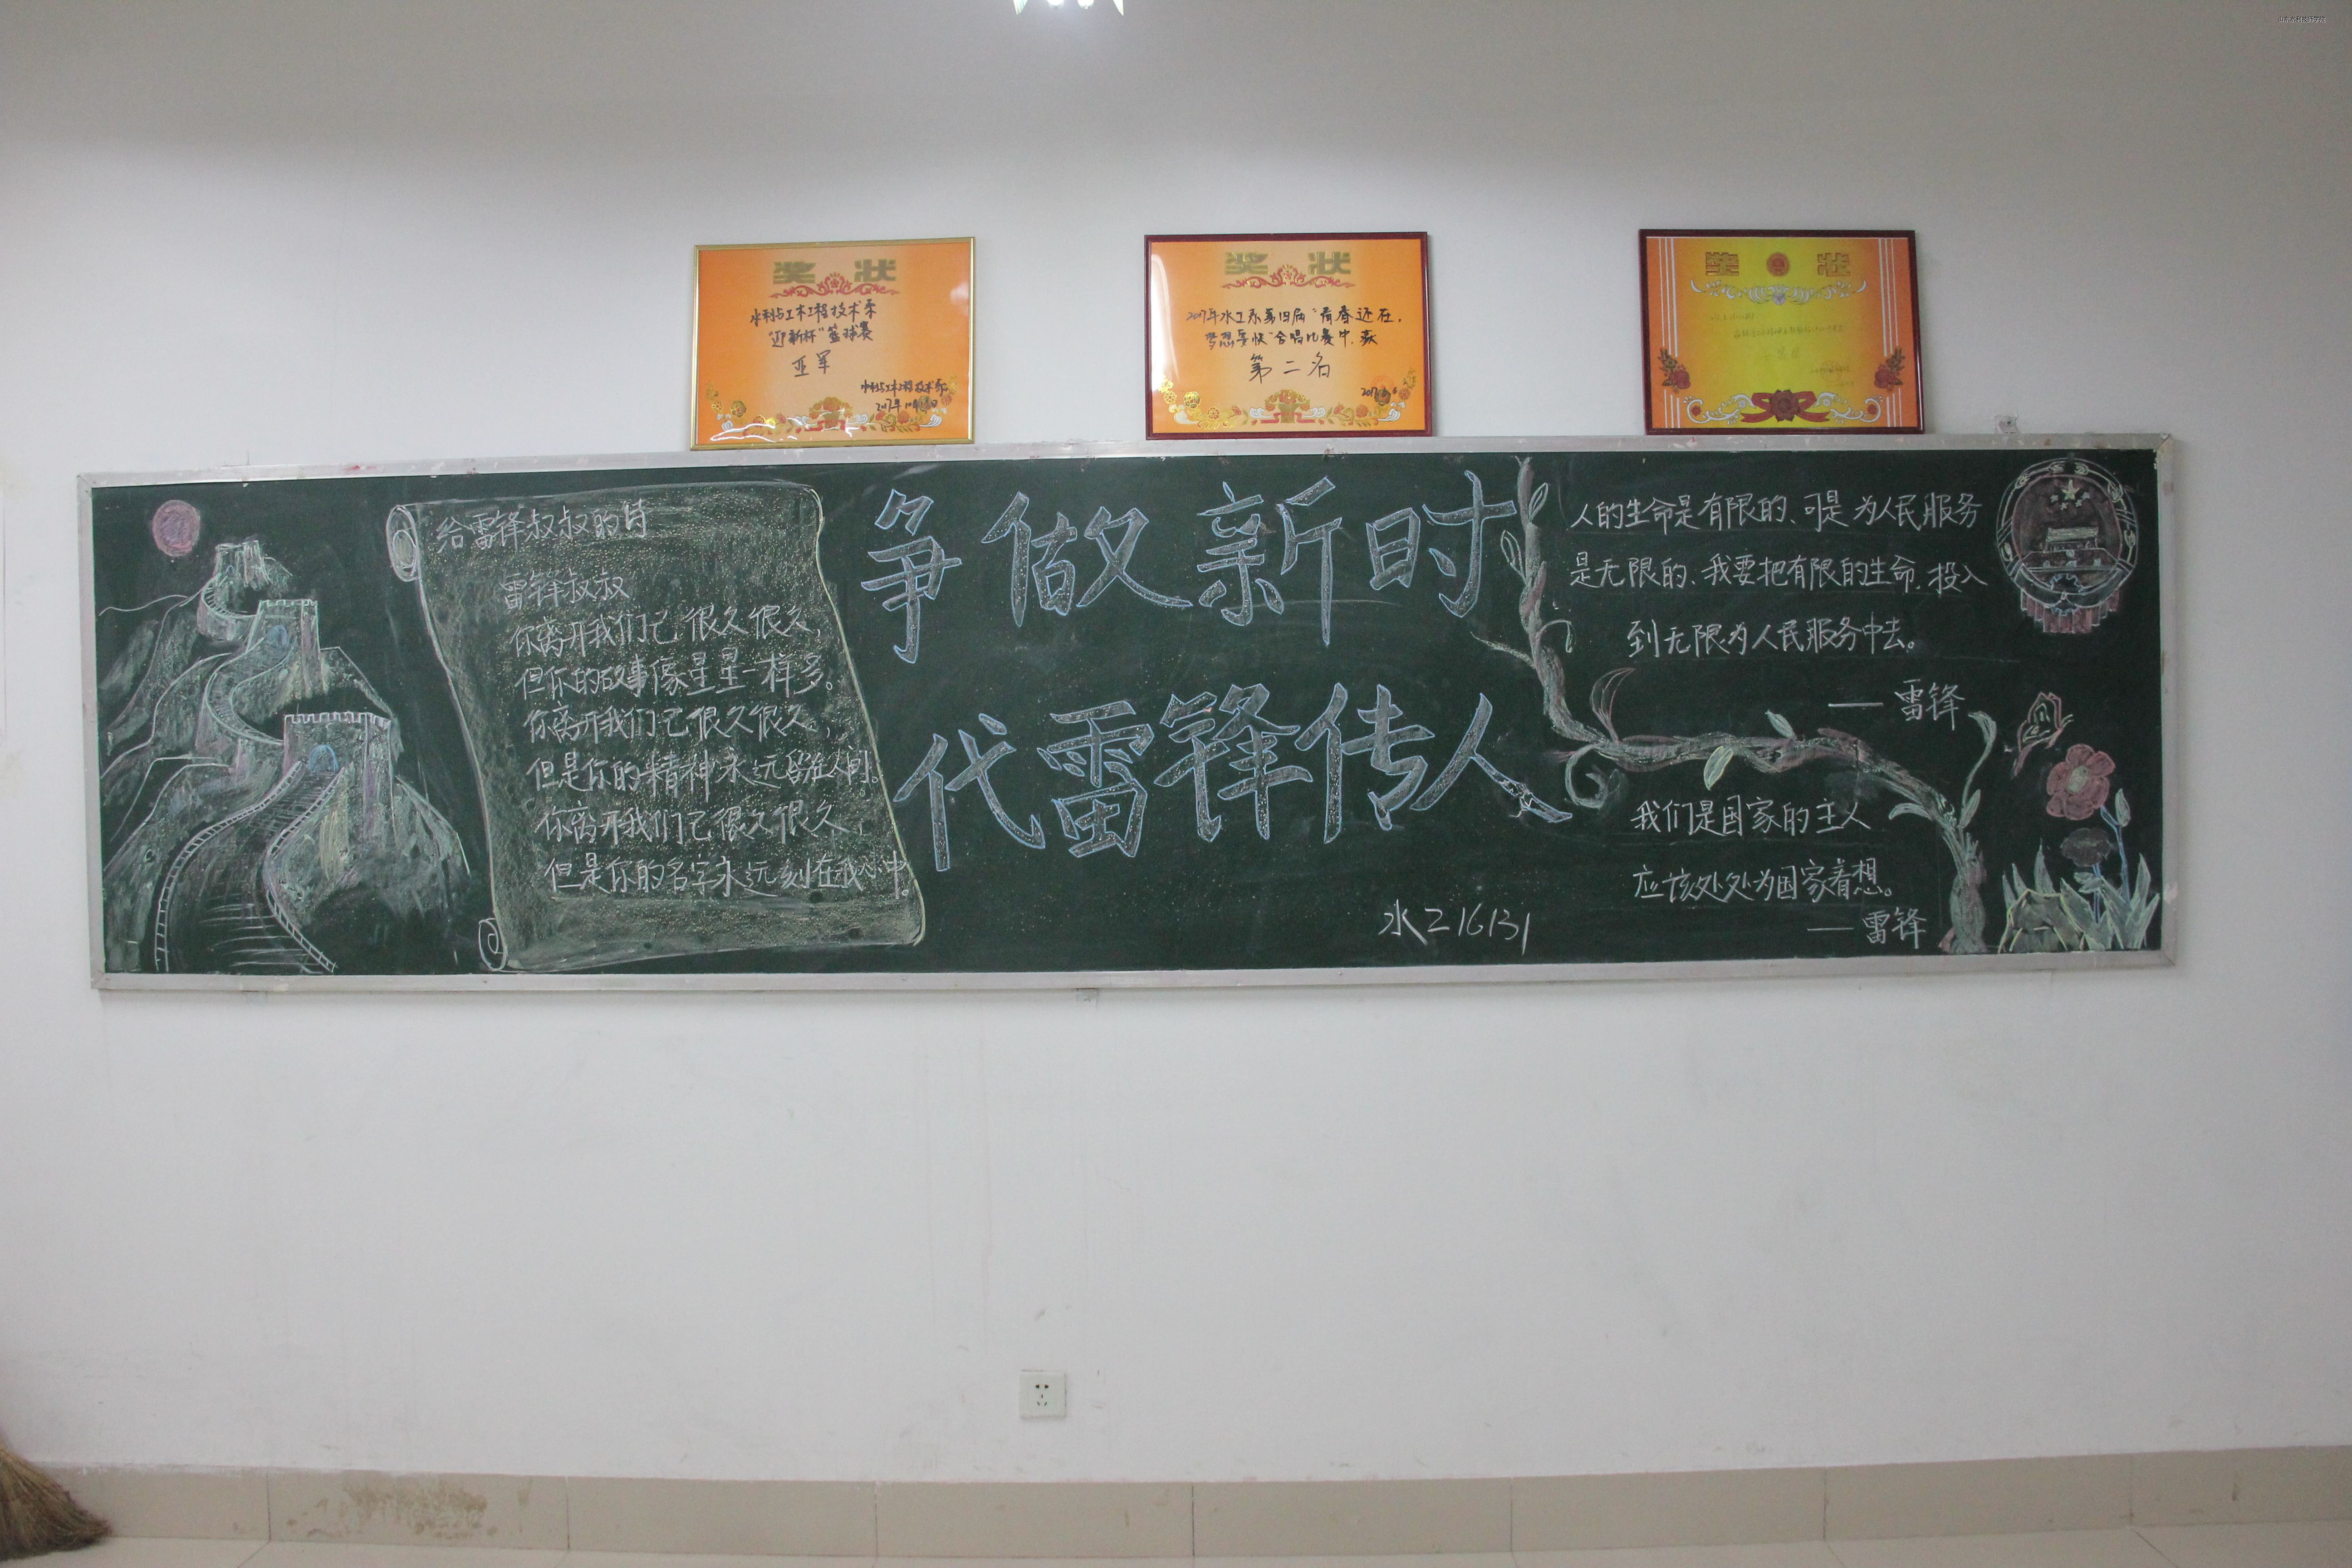 奖 状
水利与土木工程技术系
“迎新杯”篮球赛
亚军
水利与土木工程技术系
奖 状
2017年水工系第四届“青春还在，
第二名
奖 状
给雷锋叔叔的诗
雷锋叔叔
你离开我们已很久很久，
但你的故事像星星一样多。
你离开我们已很久很久，
但是你的精神永远留在人间。
你离开我们已很久很久，
但是你的名字永远刻在我心中。
争做新时
代雷锋传人
水工16131
人的生命是有限的、可是为人民服务
是无限的、我要把有限的生命，投入
到无限为人民服务中去。
——雷锋
我们是国家的主人
应该处处为国家着想。
——雷锋